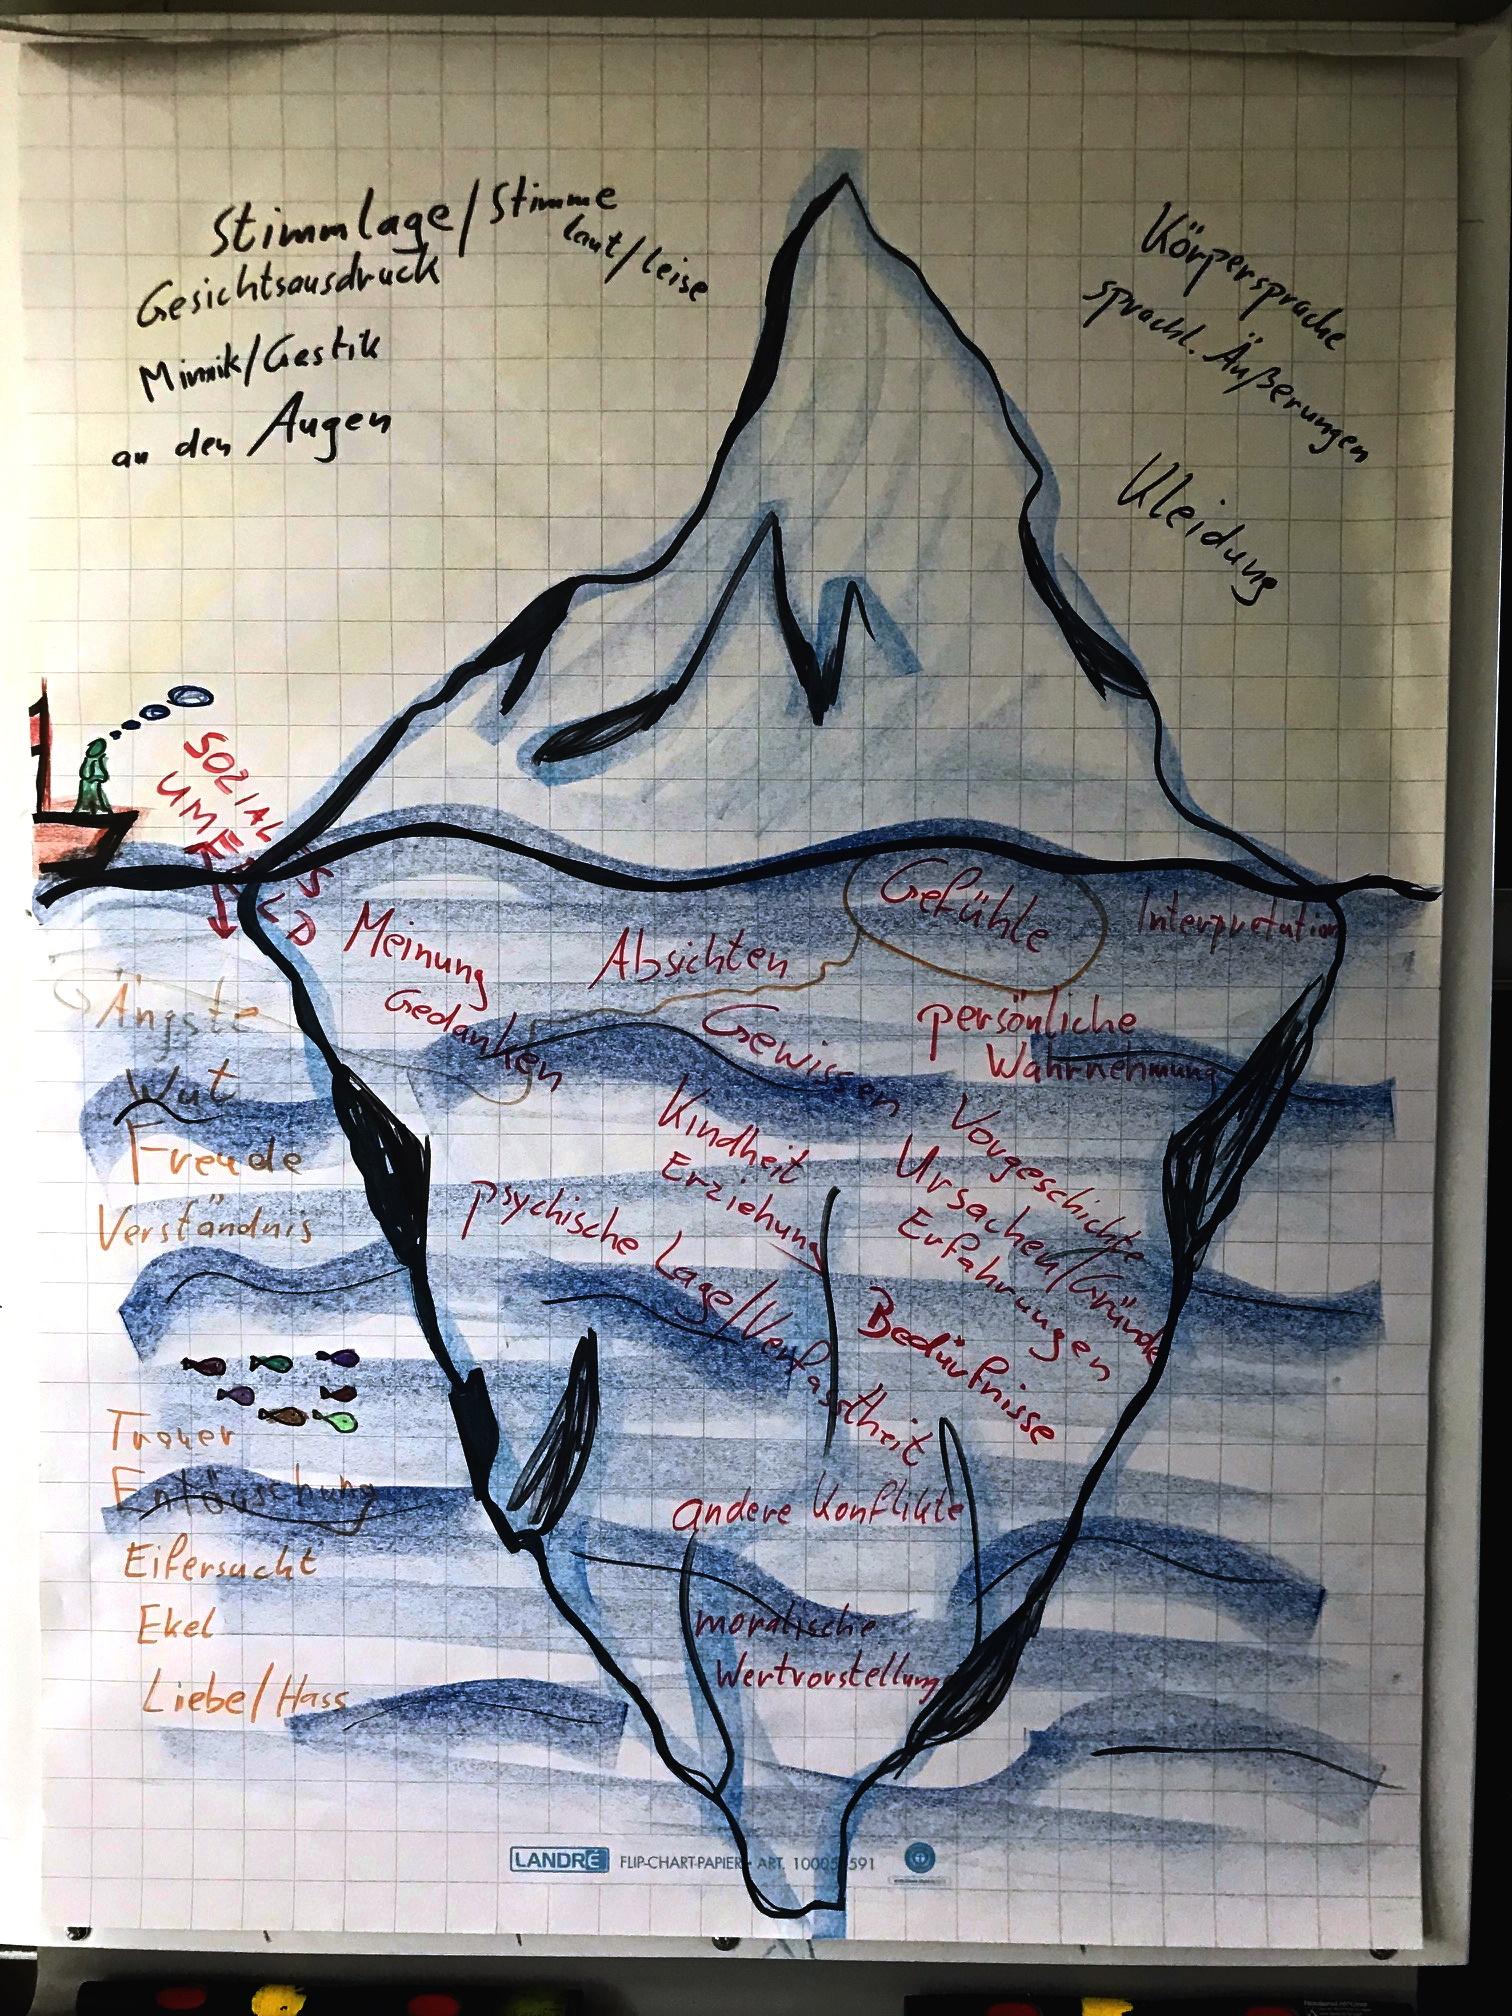 Stimmlage/Stimme
laut/leise
Gesichtsausdruck
Mimik/Gestik
an den Augen
Körpersprache
sprachl. Äußerungen
Kleidung
SOZIALES
UMFELD
Meinung
Gedanken
Absichten
Gefühle
Interpretation
Gewissen
persönliche
Wahrnehmung
Kindheit
Erziehung
Vorgeschichte
Ursachen/Gründe
Erfahrungen
psychische Lage/Verfasstheit
Bedürfnisse
andere Konflikte
moralische
Wertvorstellung
Ängste
Wut
Freude
Verständnis
Trauer
Entäuschung
Eifersucht
Ekel
Liebe/Hass
LANDRÉ FLIP-CHART-PAPIER ART.